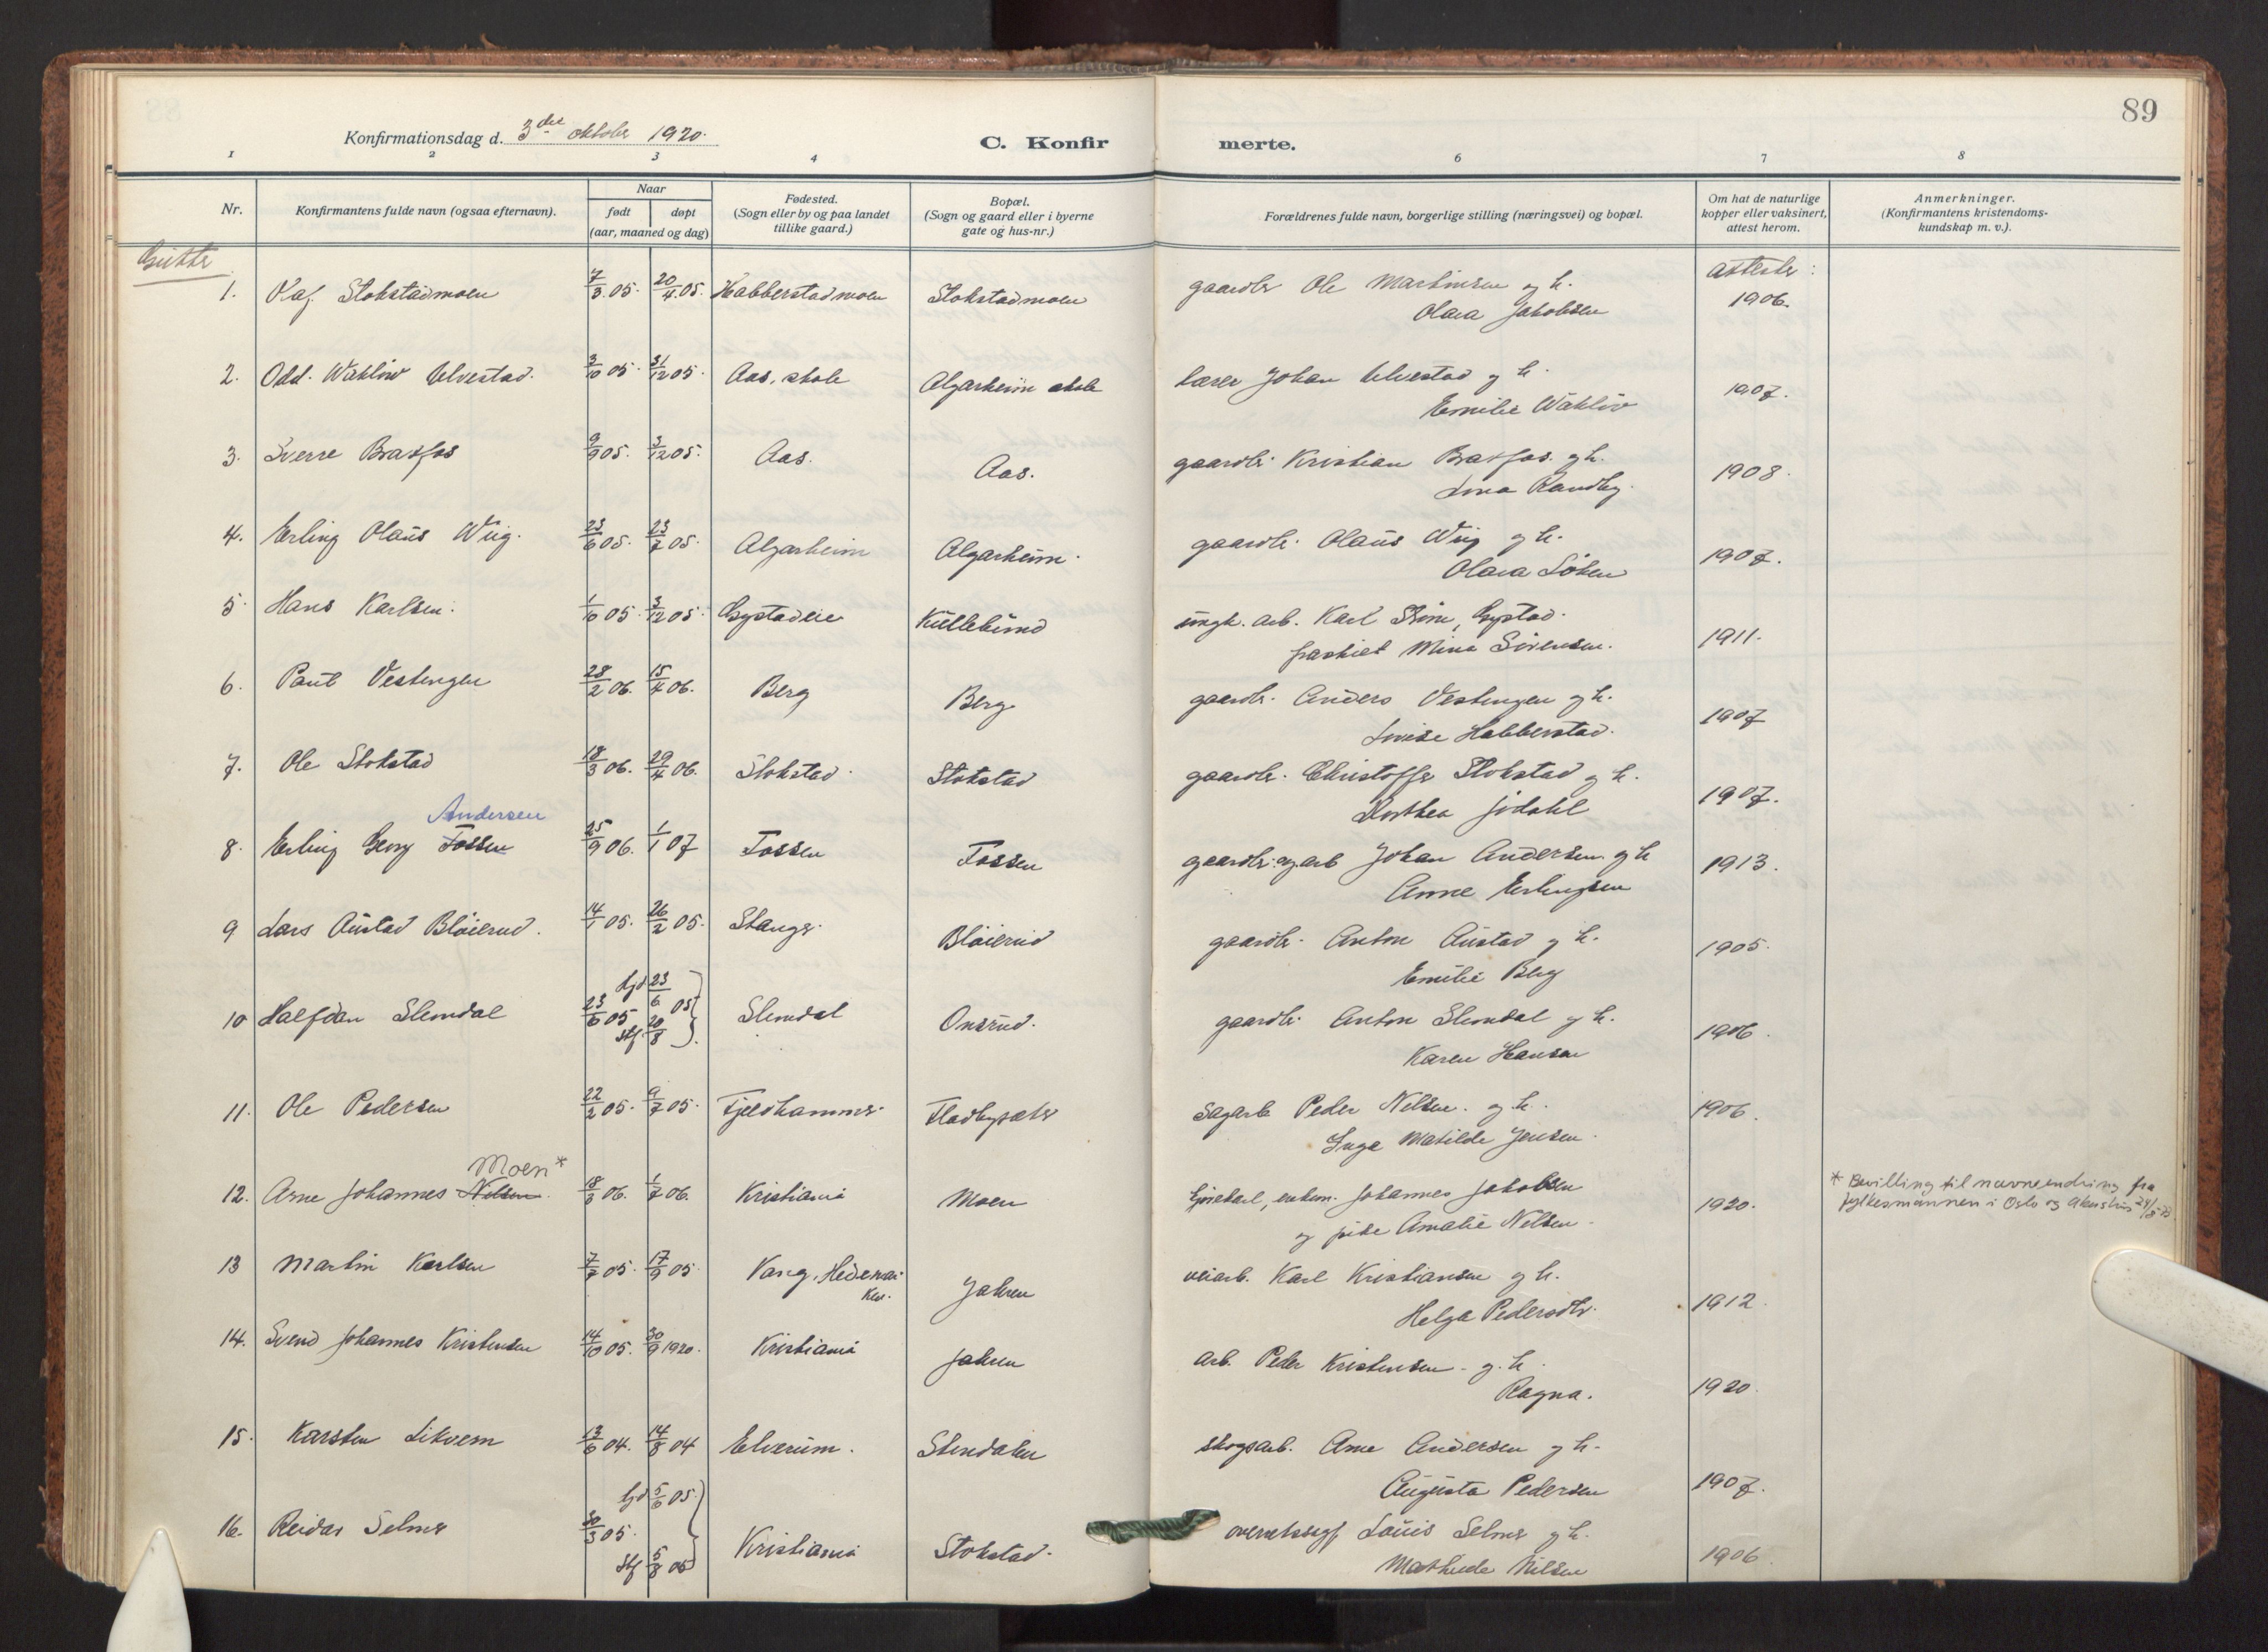 89
Konfirmationsdag d. 3die oktober 1920.
C. Konfirmerte.
1 2 3 4 6 7 8
Nr.
Konfirmantens fulde navn (ogsaa efternavn).
Naar
født døpt
(aar, maaned og dag)
Fødested.
(Sogn eller by og paa landet
tillike gaard.)
Bopæl.
(Sogn og gaard eller i byerne
gate og hus-nr.)
Forældrenes fulde navn, borgerlige stilling (næringsvei) og bopæl.
Om hat de naturlige
kopper eller vaksinert,
attest herom.
Anmerkninger.
(Konfirmantens kristendoms-
kundskap m. v.).
Gutter
attester:
1. Olaf Stokstadmoen 7/3 05. 20/4 05. Habberstadmoen Stokstadmoen gaardbr Ole Martinsen og h. 1906.
Olava Jakobsen
2. Odd Ulvestad. 3/10 05. 31/12 05. Aas, skole Algarheim skole lærer Johan Ulvestad og h. 1907.
Emilie
3. Sverre Brasfos 9/9 05. 3/12 05. Aas. Aas. gaardbr. Kristian Brasfos og h. 1908.
Lina Randby.
4. Erling Olaus Wiig. 23/6 05. 23/7 05. Algarheim Algarheim. gaardbr. Olaus Wiig og h. 1907.
Olava Löken
5. Hans Karlsen. 1/10 05. 3/12 05. Gystadeie Kullebund ungk. arb. Karl Gystad.
fraskilt Mina Sörensen. 1911.
6. Paul Vestengen 28/2 06. 15/4 06. Berg Berg gaardbr. Anders Vestengen og h.
Lovise Habberstad. 1907
7. Ole Stokstad 18/3 06. 29/4 06. Stokstad. Stokstad gaardbr. Christoffer Stokstad og h.
Dorthea Jödahl 1907.
Andersen
8. Erling Georg Fossen 25/9 06. 1/1 07 Fossen Fossen gaardbr. og arb Johan Andersen og h 1913.
Anne Erlingsen
9 Lars Austad Blöierud. 14/1 05. 26/2 05. Stange. Blöierud gaardbr. Anton Austad og h. 1905.
Emilie Berg
10 Halfdan Slemdal 23/6 05 hjd 23/6 05 stf. 20/8 Slemdal Onsrud. gaardbr. Anton Slemdal og h. 1906.
Karen Hansen
11. Ole Pedersen 22/2 05. 9/7 05. Fjeldhammer Fladbysæter sagarb Peder Nilsen og h. 1906.
Inga Matilde Jensen.
Moen*
12. Arne Johannes Nilsen 18/3 06. 1/7 06. Kristiania Moen enkem. Johannes Jakobsen
og pike Amalie Nilsen. 1920.
* Bevilling til navneendring fra
fylkesmannen i Oslo og Akershus
13 Martin Karlsen 7/7 05. 17/9 05. Vang, Hedemar- Jahren veiarb. Karl Kristiansen og h.
ken.
Helga Pedersdtr. 1912.
14. Svend Johannes Kristensen 14/10 05. 30/9 1920. Kristiania Jahren arb. Peder Kristensen og h.
Ragna. 1920.
15. Karsten Likvern 13/6 04. 14/8 04 Elverum. Stendalen skogsarb. Arne Andersen og h.
Augusta Pedersen 1907.
16. Reidar Selmer 30/3 05. hjd 5/6 05. stf 5/8 05 Kristiania Stokstad. overretssagf Louis Selmer og h.
Mathilde Nilsen 1906.